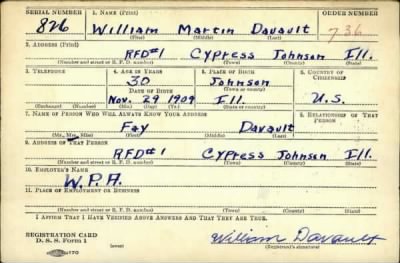 SERIAL NUMBER 1. NAME (Print) ORDER NUMBER
826 William Martin Davault 736
(First) (Middle) (Last)
2. ADDRESS (Print)
RFD#1 Cypress Johnson Ill.
(Number and street or R. F. D. number) (Town) (County) (State)
3. TELEPHONE 4. AGE IN YEARS 5. PLACE OF BIRTH 6. COUNTRY OF CITIZENSHIP
30 Johnson
(Town or county)
DATE OF BIRTH
Nov. 29 1909 Ill. U.S.
(Exchange) (Number) (Mo.) (Day) (Yr.) (State or country)
7. NAME OF PERSON WHO WILL ALWAYS KNOW YOUR ADDRESS 8. RELATIONSHIP OF THAT PERSON
Fay Davault
(Mr., Mrs., Miss) (First) (Middle) (Last)
9. ADDRESS OF THAT PERSON
RFD#1 Cypress Johnson Ill.
(Number and street or R. F. D. number) (Town) (County) (State)
10. EMPLOYER'S NAME
W.P.A.
11. PLACE OF EMPLOYMENT OR BUSINESS
(Number and street or R. F. D. number) (Town) (County) (State)
I AFFIRM THAT I HAVE VERIFIED ABOVE ANSWERS AND THAT THEY ARE TRUE.
REGISTRATION CARD
D. S. S. Form 1 (over) William Davault
(Registrant's signature)